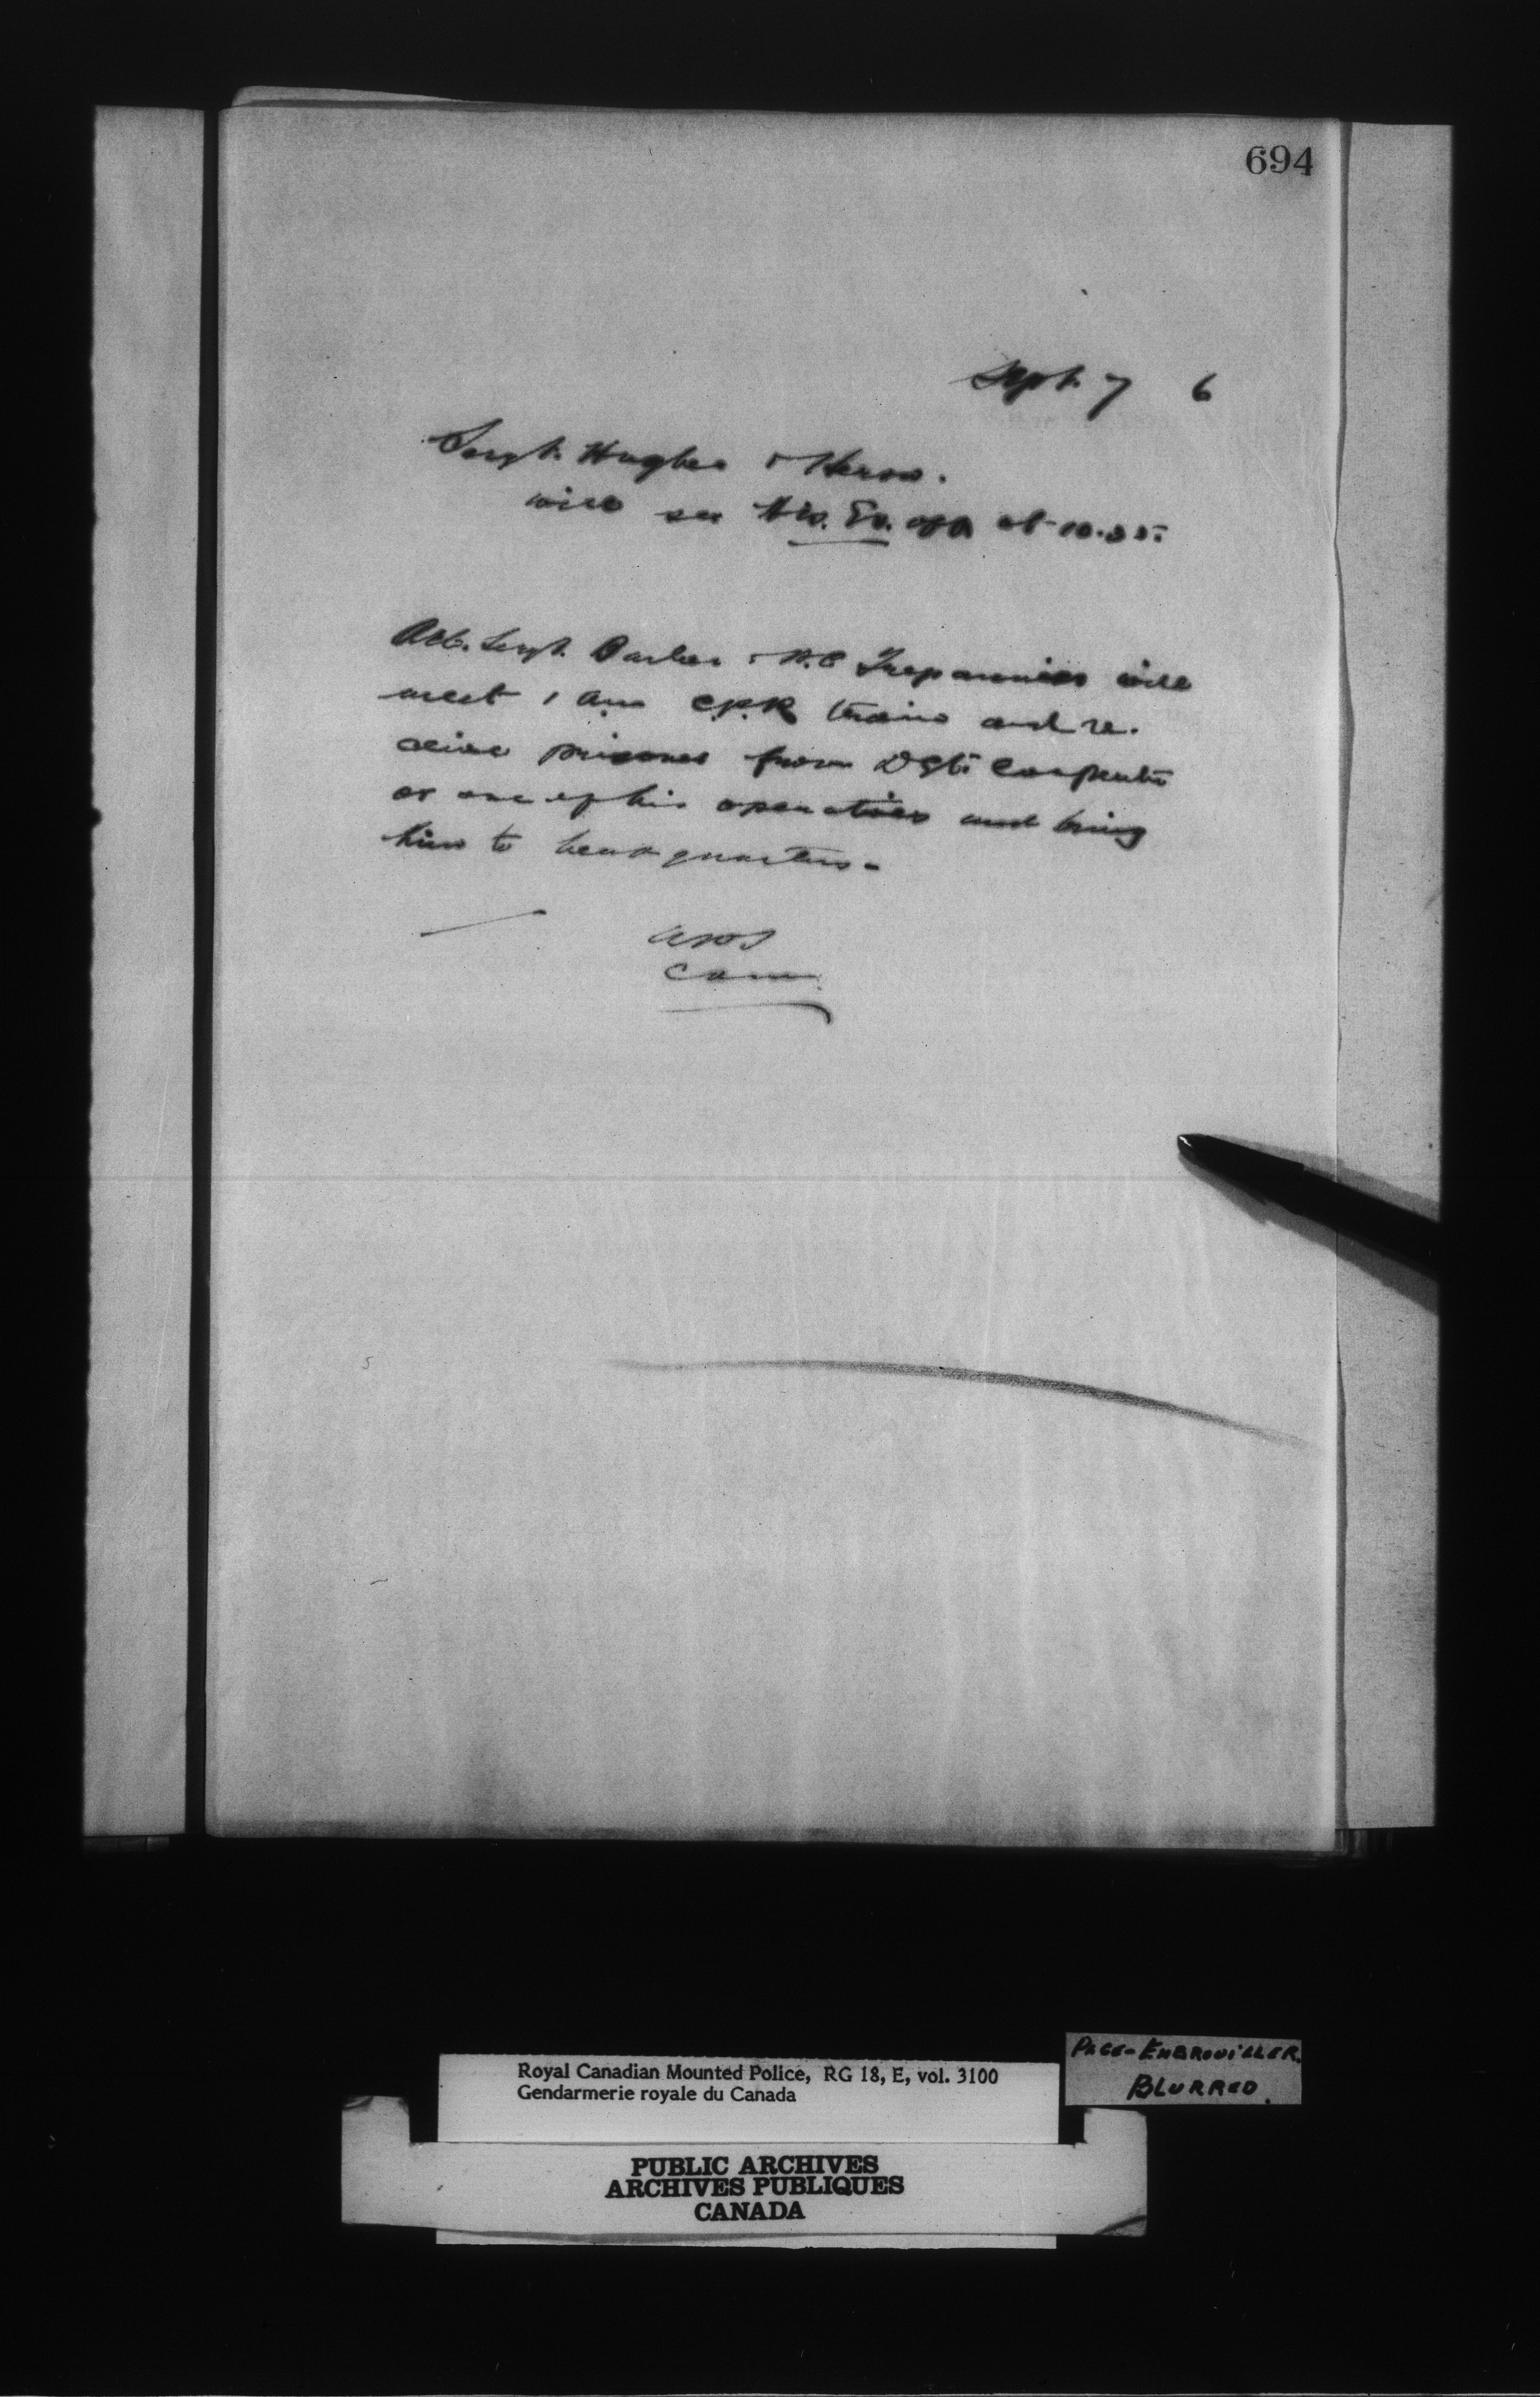 694
Sept. 7 6
Sergt. Hughes & Heron.
will see His. Ex. off at 10.25.
Act. Sergt. Parker & P.C Trepannier will
meet 1 am C.P.R train and re.
ceive prisoner from Dgt. Carpenter
or one of his operatives and bring
him to head quarters.
Com.
Royal Canadian Mounted Police, RG 18, E, vol. 3100
Gendarmerie royale du Canada
PAGE-EMBROUILLER.
BLURRED.
PUBLIC ARCHIVES
ARCHIVES PUBLIQUES
CANADA